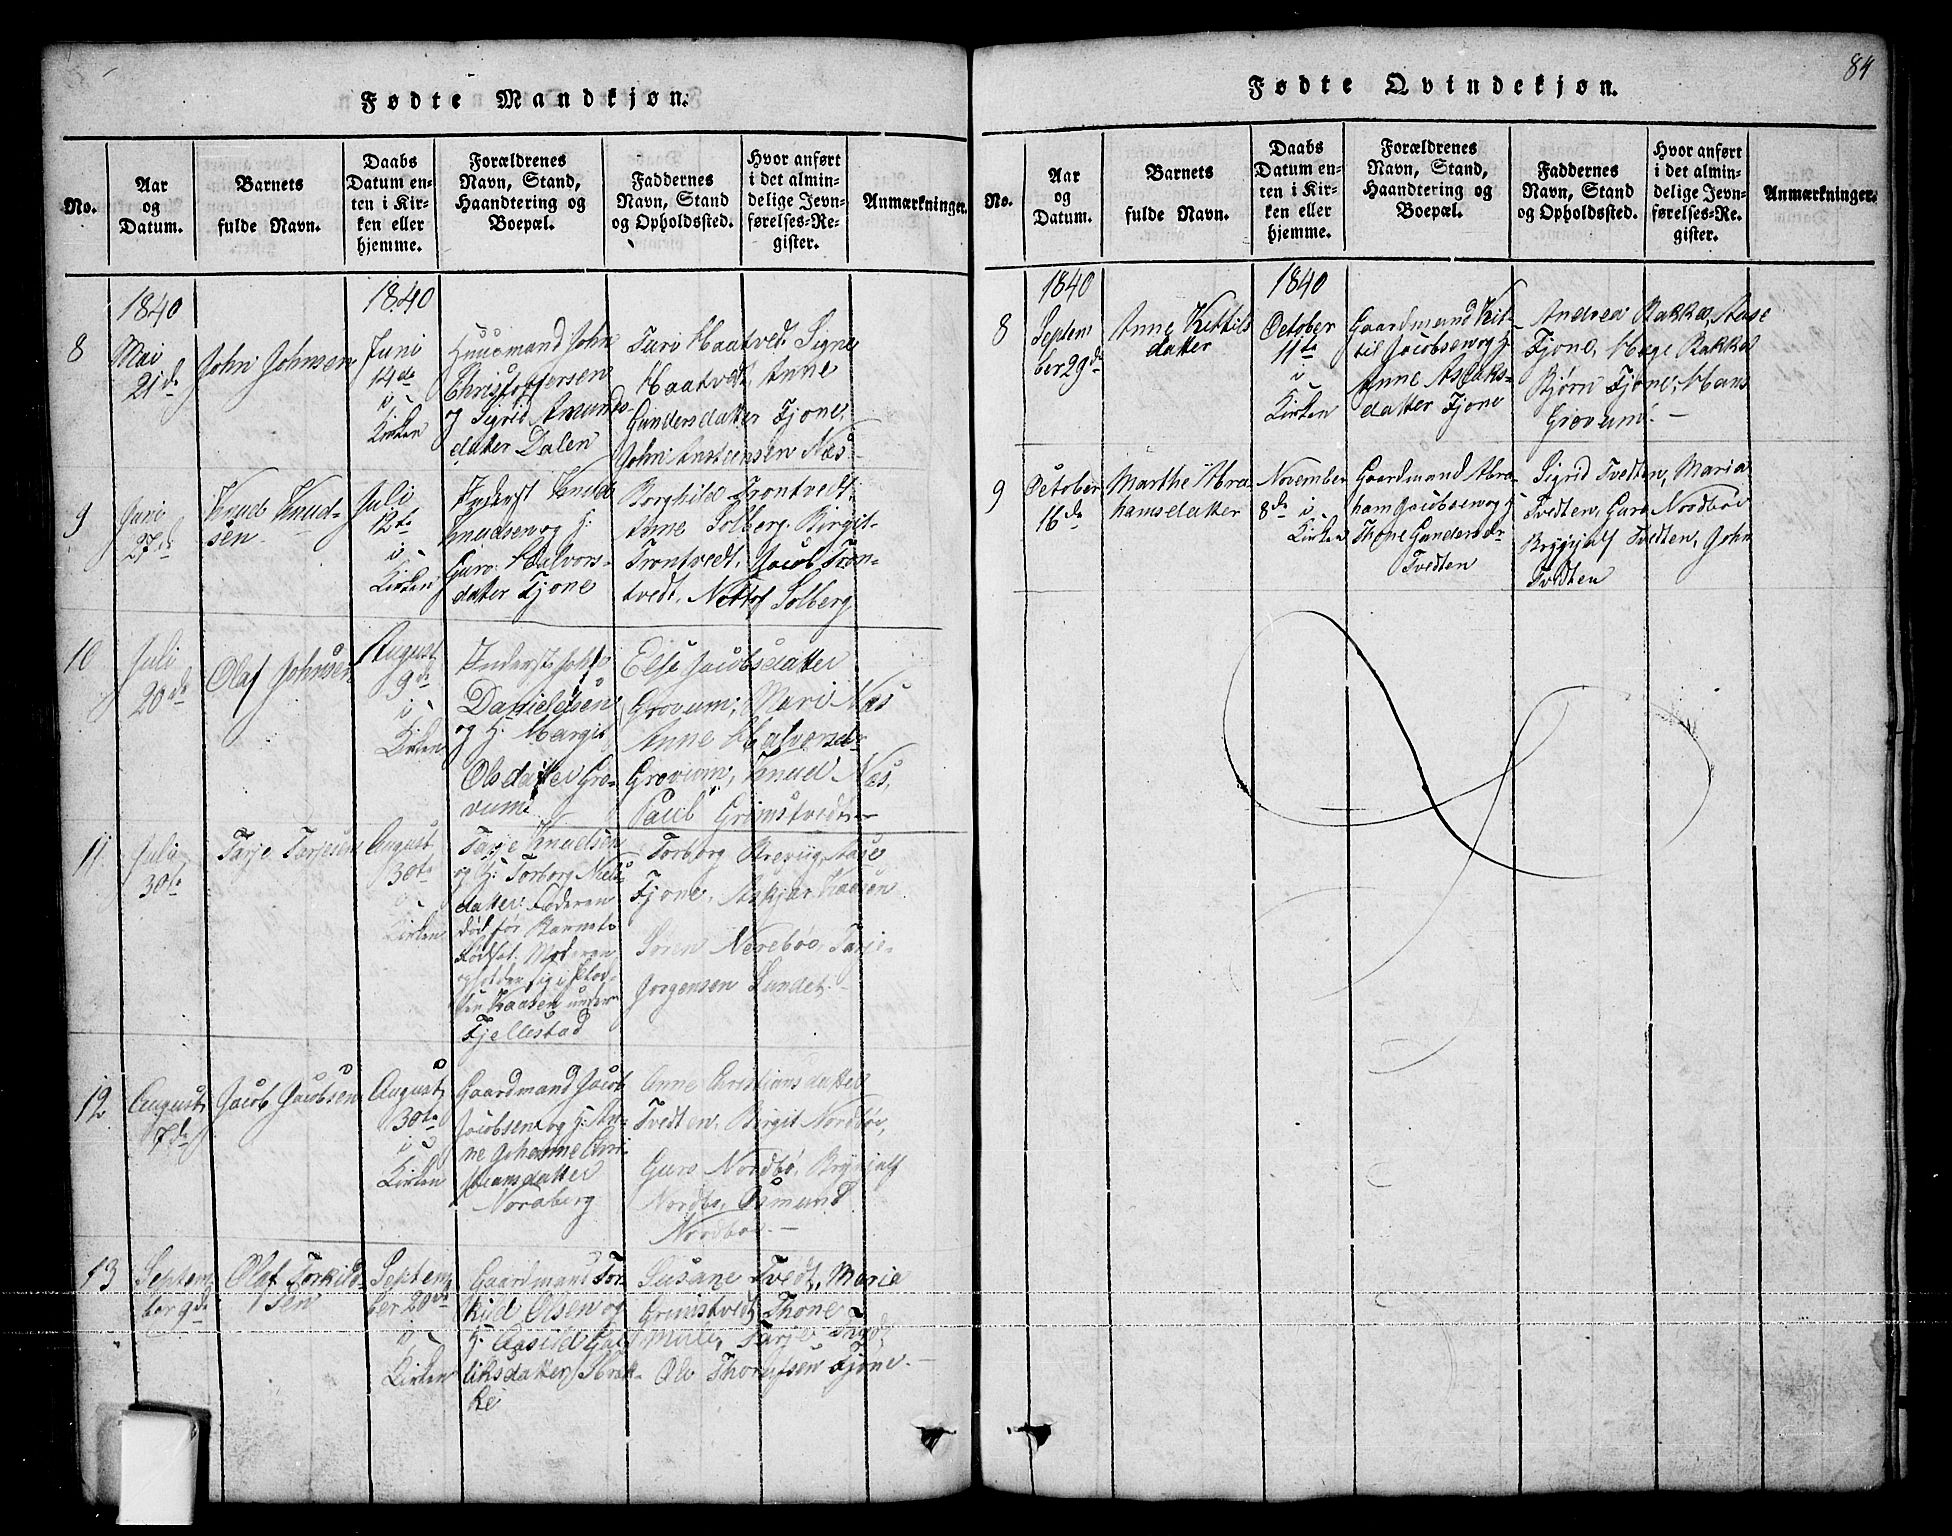 Fødte Mandkjøn.
No.
Aar
og
Datum.
Barnets
fulde Navn.
Daabs
Datum en-
ten i Kir-
ken eller
hjemme.
Forældrenes
Navn, Stand,
Haandtering og
Boepæl.
Faddernes
Navn, Stand
og Opholdssted.
Hvor anført
i det almin-
delige Jevn-
førelses-Re-
gister.
Anmærkninger.
1840
1840
8
Mai
21de
John Johnsen
Juni
14de
i
Kirken
Huusmand John
Christophersen
og Sigrid Amunds-
datter Dalen
Turi Haatvedt, Signe
Haatvedt, Anne
Gundersdatter Fjone,
John Austensen Næs
9
Juni
27de
Knud Knud-
sen
Juli
12te
i
Kirken
Inderst Knud
Knudsen og H:
Guro Halvors-
datter Fjone
Borghild Trontvedt
Anne Solberg, Birgit
Trontvedt, Jacob Tron-
tvedt, Nottof Solberg
10
Juli
20de
Olaf Johnsen
August
9de
i
Kirken
Inderst John
Danielsen
og H: Margit
Olsdatter Gro-
vum
Else Jacobsdatter
Grovum, Mari Næs
Anne Halvorsdr
Grovum, Knud Næs,
Paul Grimstvedt
11
Juli
30te
Tarje Tarjesen
August
30te
i
Kirken
Tarje Knudsen
og H: Torborg Niels-
datter. Faderen
død før Barnets
Fødsel. Moderen
opholder sig i
Kaasen under
Fjellestad
Torborg Brevig, Aase
Fjone, Askjær Kaasen
Søren Nørebøe, Tarje
Jørgensen Sundet
12
August
7de
Jacob Jacobsen
August
30te
i
Kirken
Gaardmand Jacob
Jacobsen og H: An-
ne Johanne Chri-
stiansdatter
Noraberg
Anne Christiansdatter
Tvedten, Birgit Nordbøe,
Guro Nordbø, Brynjulf
Nordbø, Osmund
Nordbøe
13
Septem-
ber 9de
Olaf Torkilds-
sen
Septem-
ber 20de
i
Kirken
Gaardmand Tor-
kild Olsen og
H. Aasild
liksdatter
ke
Susane Tvedt, Maria
Grimstvedt, Thone
Tarje
Ole Fjone
84
Fødte Qvindekjøn.
No.
Aar
og
Datum.
Barnets
fulde Navn.
Daabs
Datum en-
ten i Kir-
ken eller
hjemme.
Forældrenes
Navn, Stand,
Haandtering og
Boepæl.
Faddernes
Navn, Stand
og Opholdssted.
Hvor anført
i det almin-
delige Jevn-
førelses-Re-
gister.
Anmærkninger.
1840
1840
8
Septem
ber 29de
Anne Kittils
datter
October
11te
i
Kirken
Gaardmand Kit-
til Jacobsen og H:
Anne Aslaks-
datter Fjone
Andrea Bakka, Aase
Fjone, Hæge Bakka
Bjørn Fjone, Hans
Grovum
9
October
16de
Marthe Abra
hamsdatter
November
8de i
Kirken
Gaardmand Abra
ham Jacobsen og H
Thone Gundersdr
Tvedten
Sigrid Tvedten, Maria
Tvedten, Guro Nordbøe
Brynjulf Tvedten, John
Tvedten